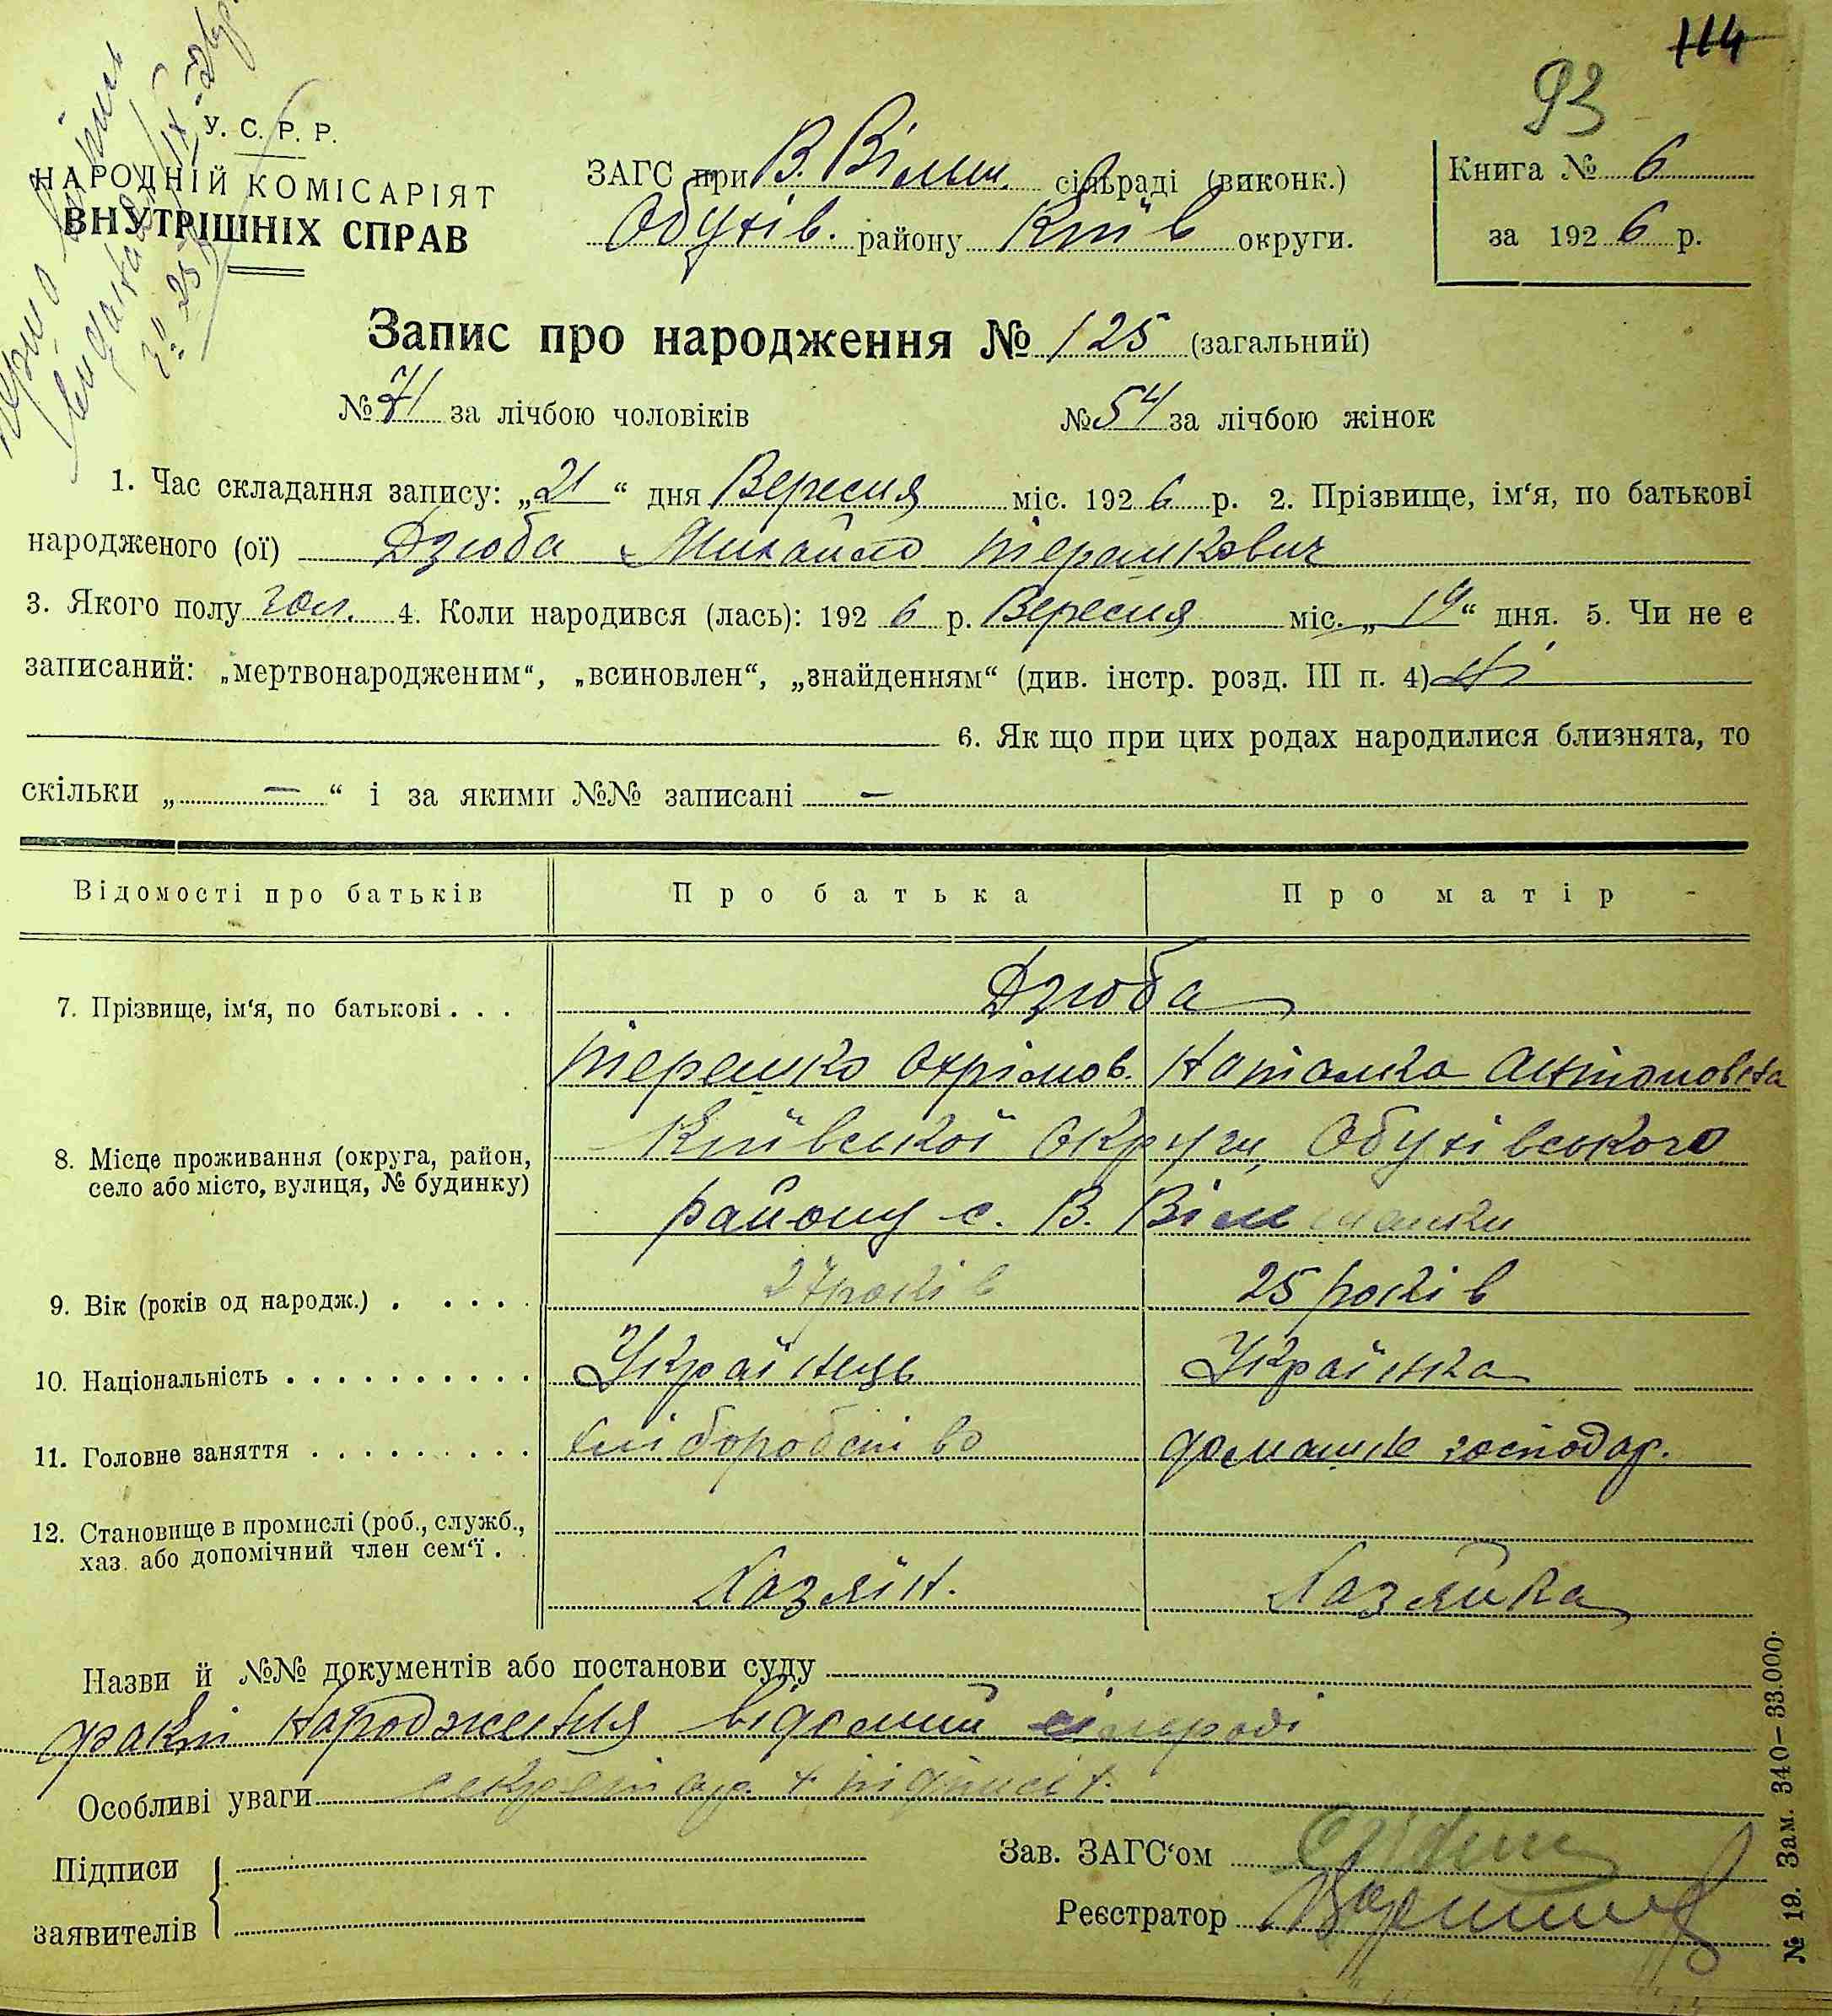 114
93
У. С. Р. Р.
НАРОДНІЙ КОМІСАРІЯТ
ВНУТРІШНІХ СПРАВ
ЗАГС при В. Вільш. сільраді (виконк.)
Обухів. району Київ округи.
Книга № 6
за 1926 р.
Запис про народження № 125 (загальний)
№ 71 за лічбою чоловіків № 54 за лічбою жінок
1. Час складання запису: „21“ дня Вересня міс. 1926 р. 2. Прізвище, ім‘я, по батькові
народженого (ої) Дзюба Михайло Терешкович
3. Якого полу чол. 4. Коли народився (лась): 1926 р. Вересня міс. „19“ дня. 5. Чи не є
записаний: „мертвонародженим“, „всиновлен“, „знайденням“ (див. інстр. розд. III п. 4) Ні
6. Як що при цих родах народилися близнята, то
скільки „ — “ і за якими №№ записані —
Відомості про батьків Про батька Про матір
7. Прізвище, ім‘я, по батькові . . . Дзюба
Терешко Охрімов. Наталка Антоновна
8. Місце проживання (округа, район,
село або місто, вулиця, № будинку)
Київської Округи, Обухівського
району с. В. Вільшанки
9. Вік (років од народж.) . . . . . 27 років 25 років
10. Національність . . . . . . . . . . Українець Українка
11. Головне заняття . . . . . . . . . хліборобство домашнє господар.
12. Становище в промислі (роб., служб.,
хаз. або допомічний член сем‘ї . .
Хазяїн. Хазяйка
Назви й №№ документів або постанови суду
факт народження відомий сільраді
Особливі уваги
Підписи
заявителів
Зав. ЗАГС‘ом
Реєстратор
№ 19. Зам. 340—33.000.